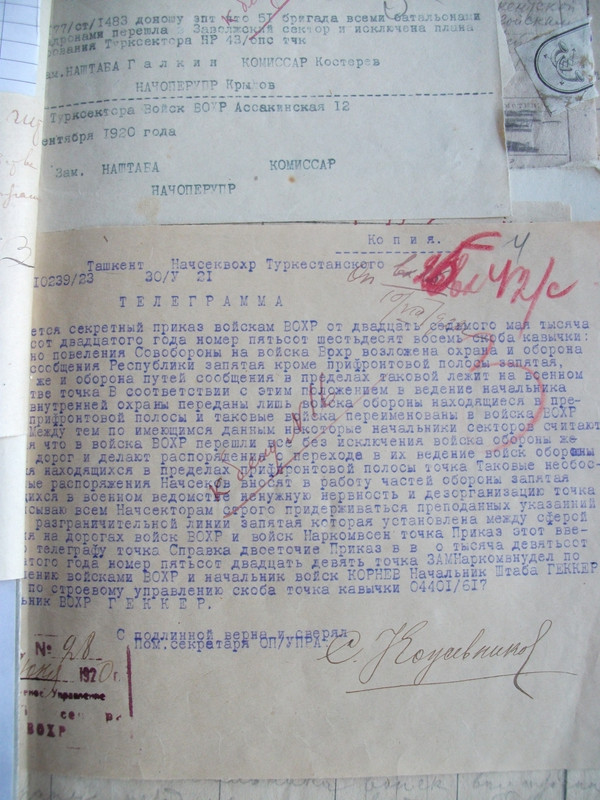 77/ст/1483 доношу зпт что 57 бригада всеми батальонами
дронами перешла в Заволжский сектор и исключена плана
ования Турксектора НР 43/опс тчк
ам. НАШТАБА Галкин КОМИССАР Костерев
НАЧОПЕРУПР Крыков
Турксектора Войск ВОХР Ассакинская 12
ентября 1920 года
Зам. НАШТАБА КОМИССАР
НАЧОПЕРУПР
Копия.
4
Ташкент Начсеквохр Туркестанского
10239/23 30/У 21
ТЕЛЕГРАММА
ется секретный приказ войскам ВОХР от двадцать седьмого мая тысяча
сот двадцатого года номер пятьсот шестьдесят восемь скоба кавычки:
но повеления Совобороны на войска Вохр возложена охрана и оборона
сообщения Республики запятая кроме прифронтовой полосы запятая,
же и оборона путей сообщения в пределах таковой лежит на военном
стве точка В соответствии с этим положением в ведение начальника
внутренней охраны переданы лишь войска обороны находящиеся в пре-
прифронтовой полосы и таковые войска переименованы в войска ВОХР
Между тем по имеющимся данным некоторые начальники секторов считают
я что в войска ВОХР перешли все без исключения войска обороны же
дорог и делают распоряжения о переходе в их ведение войск обороны
я находящихся в пределах прифронтовой полосы точка Таковые необос-
ые распоряжения Начсеков вносят в работу частей обороны запятая
щихся в военном ведомстве ненужную нервность и дезорганизацию точка
исываю всем Начсекторам строго придерживаться преподанных указанний
разграничительной линии запятая которая установлена между сферой
я на дорогах войск ВОХР и войск Наркомвсен точка Приказ этот вве-
о телеграфу точка Справка двсеточие Приказ в в о тысяча девятьсот
атого года номер пятьсот двадцать девять точка ЗАМНаркомвнудел по
лению войсками ВОХР и начальник войск КОРНЕВ Начальник Штаба ГЕККЕР
по строевому управлению скоба точка кавычки 04401/617
льник ВОХР ГЕККЕР.
С подлинной верна и сверял
Пом. секретаря ОП/УПРА.
С. Кожевников
№ 28
1920 г.
ное Управление
ВОХР